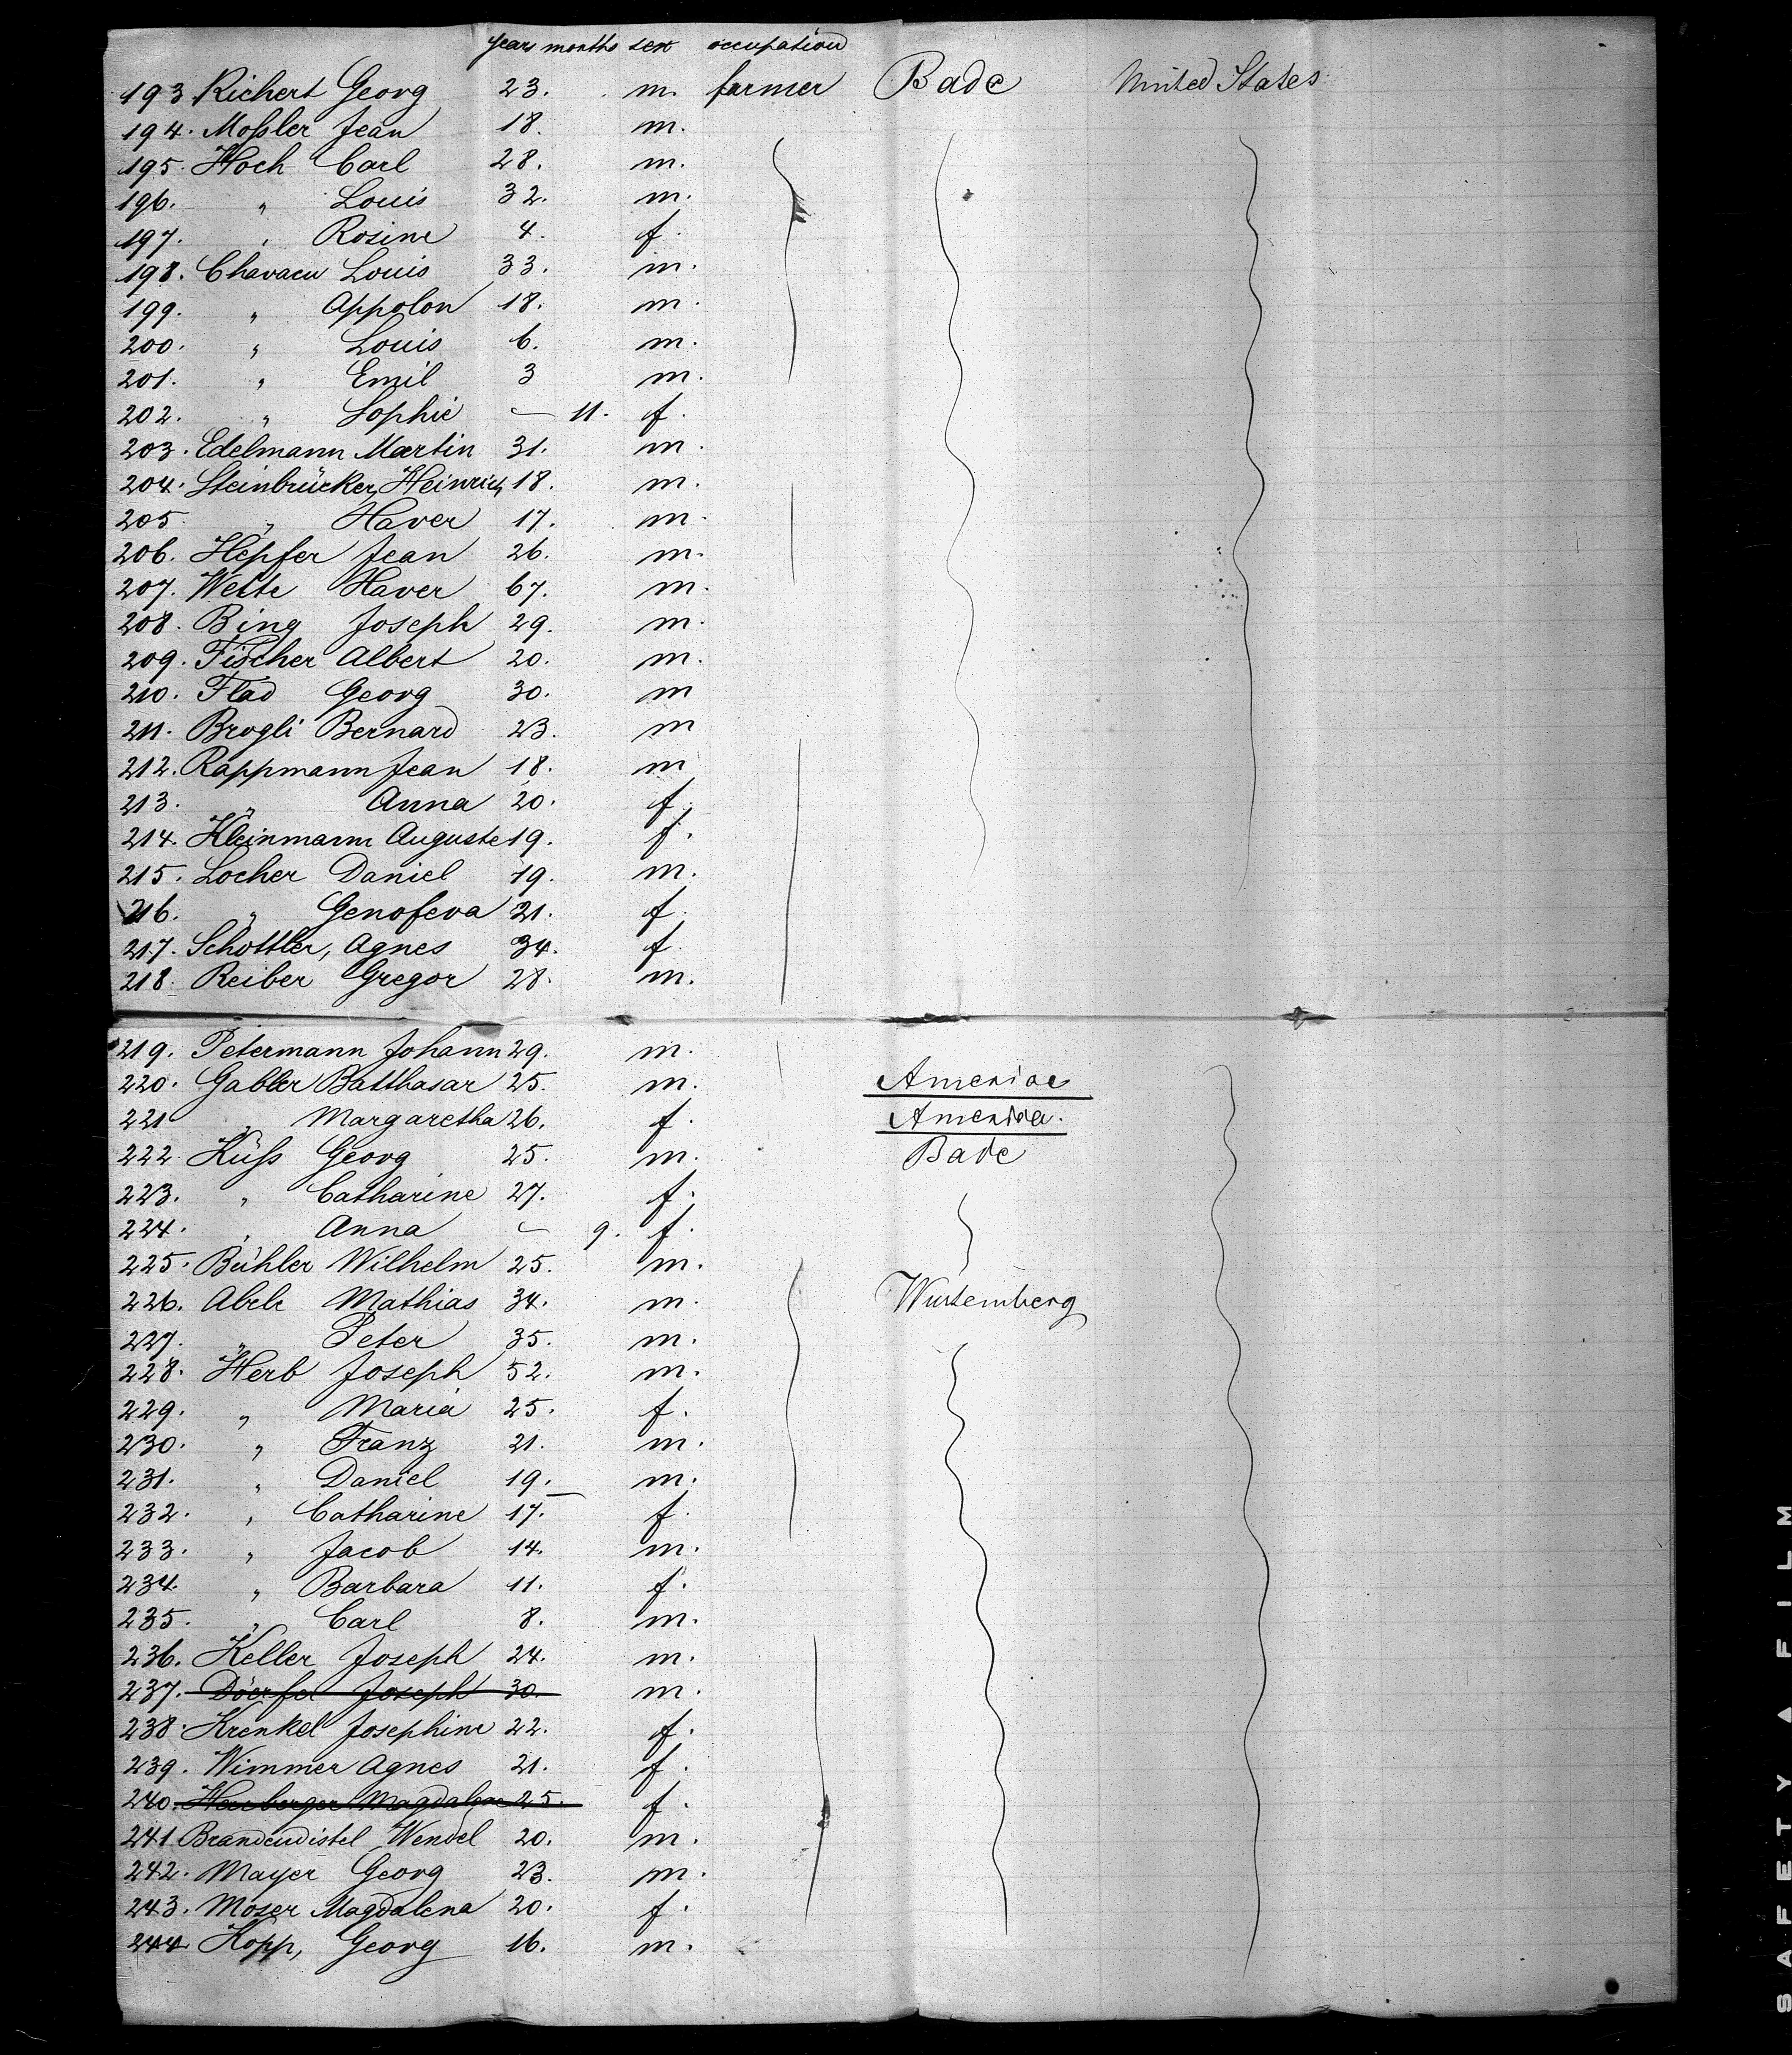 years months sex occupation
193 Richert Georg 23. m. farmer Bade United States
194. Moßler Jean 18. m.
195. Hoch Carl 28. m.
196. " Louis 32. m.
197. " Rosine 4. f.
198. Chavacu Louis 33. m.
199. " Appolon 18. m.
200. " Louis 6. m.
201. " Emil 3 m.
202. " Sophie — 11. f.
203. Edelmann Martin 31. m.
204. Steinbrücker, Heinrich 18. m.
205. " Xaver 17. m.
206. Hepfer Jean 26. m.
207. Welte Xaver 67. m.
208. Bing Joseph 29. m.
209. Fischer Albert 20. m.
210. Flad Georg 30. m
211. Brogli Bernard 23. m
212. Rappmann Jean 18. m
213. " Anna 20. f.
214. Kleinmann Auguste 19. f.
215. Locher Daniel 19. m.
216. " Genofeva 21. f.
217. Schottler, Agnes 34. f.
218. Reiber Gregor 28. m.
219. Petermann Johann 29. m.
220. Gabler Balthasar 25. m. Americae
221 " Margaretha 26. f. America.
222. Küßs Georg 25. m. Bade
223. " Catharine 27. f.
224. " Anna — 9. f.
225. Bühler Wilhelm 25. m.
226. Abele Mathias 34. m. Wurtemberg
227. " Peter 35. m.
228. Herb Joseph 52. m.
229. " Maria 25. f.
230. " Franz 21. m.
231. " Daniel 19. m.
232. " Catharine 17. f.
233. " Jacob 14. m.
234. " Barbara 11. f.
235. " Carl 8. m.
236. Keller Joseph 24. m.
237. Döerfel Joseph 30. m.
238. Krenkel Josephine 22. f.
239. Wimmer Agnes 21. f.
240. Magdalene 25. f.
241 Brandendistel Wendel 20. m.
242. Mayer Georg 23. m.
243. Moser Magdalena 20. f.
244 Kopp, Georg 16. m.
SAFETY ▲ FILM